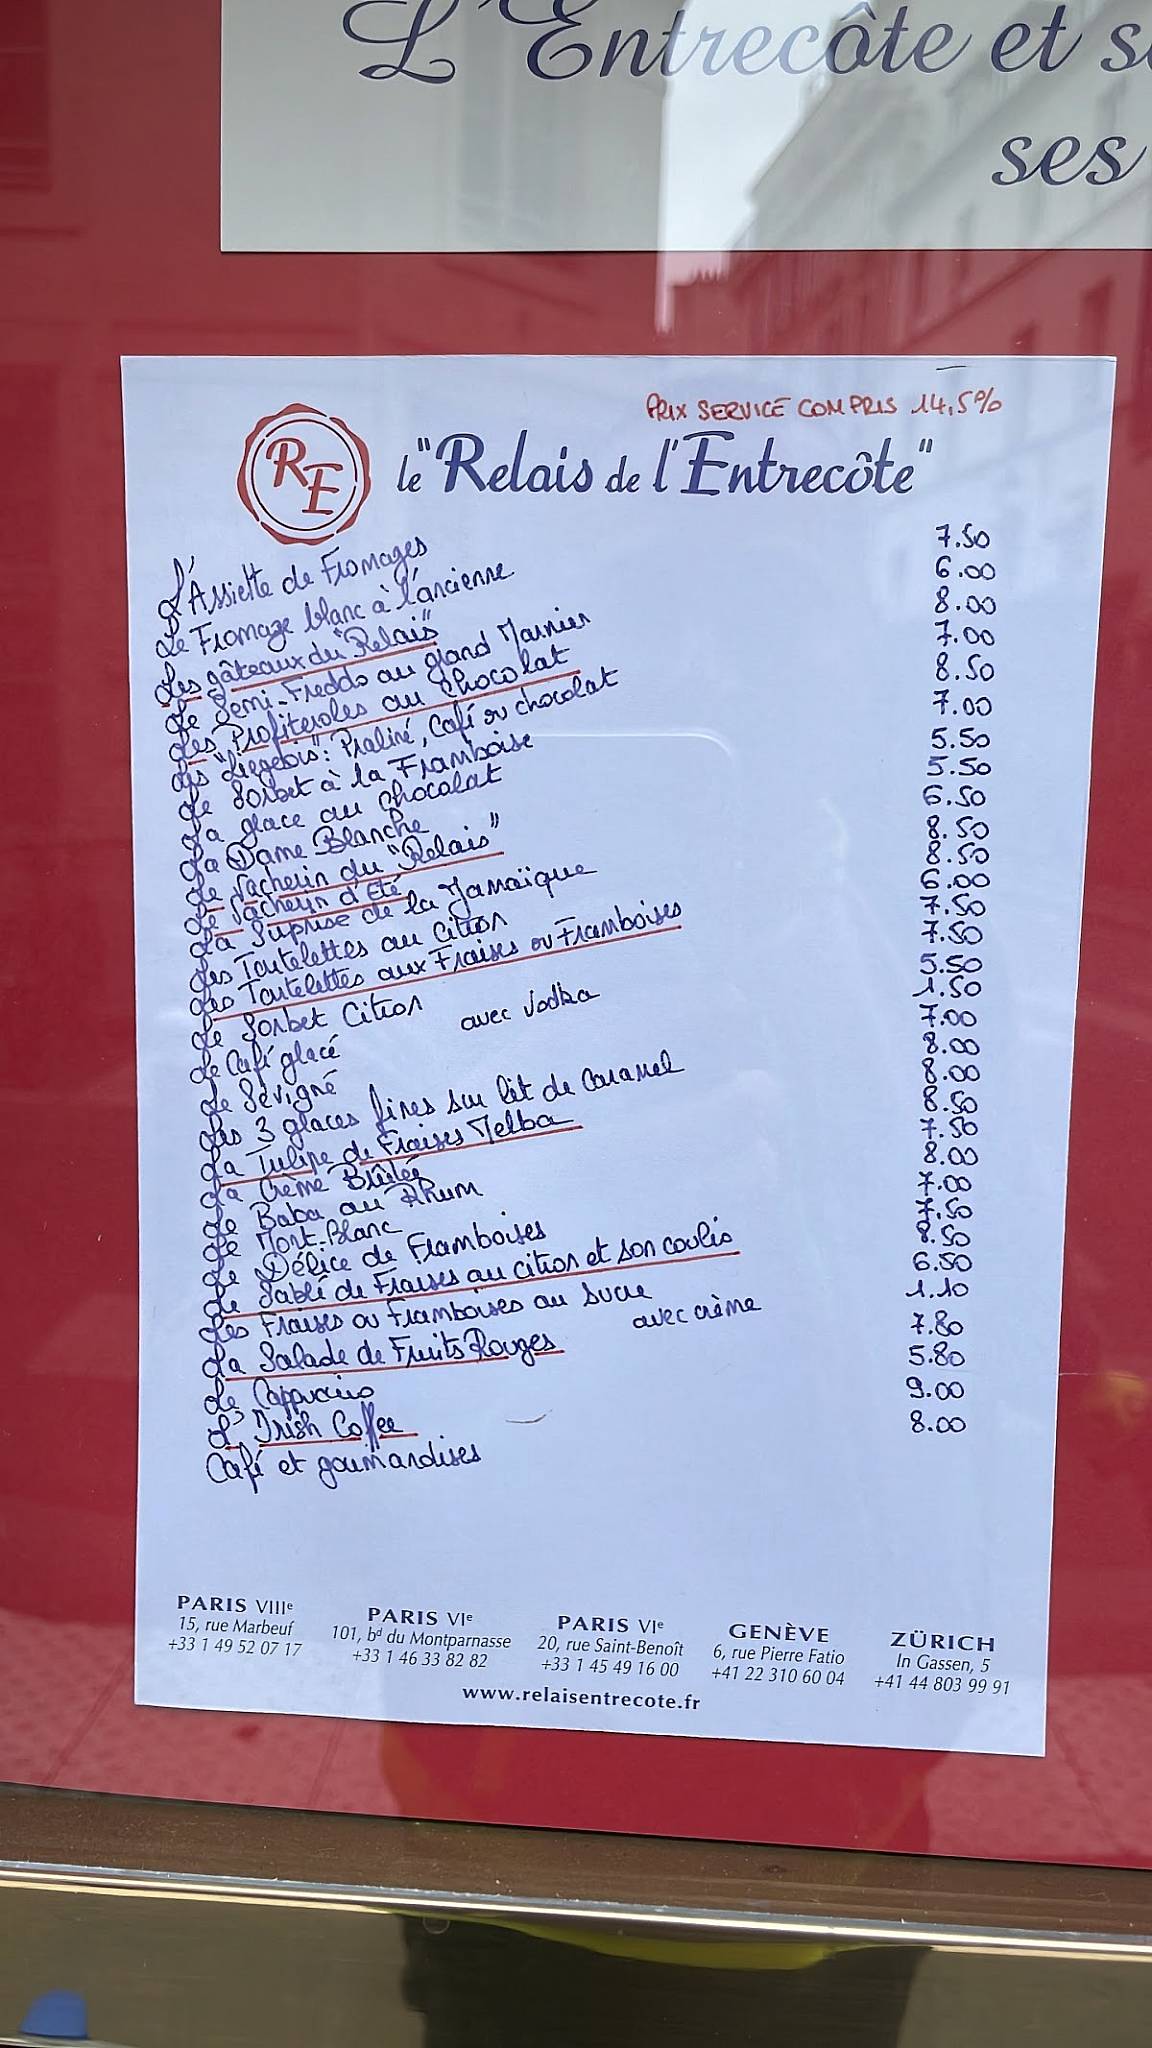 L'Entrecôte et s
ses
PRIX SERVICE COMPRIS 14,5%
RE
le "Relais de l'Entrecôte"
L'Assiette de Fromages 7.50
Le Fromage blanc à l'ancienne 6.00
Les gâteaux du "Relais" 8.00
Le Semi-Freddo au grand Marnier 7.00
Les Profiteroles au Chocolat 8.50
Les "Liegeois": Praliné, Café ou chocolat 7.00
Le Sorbet à la Framboise 5.50
La glace au Chocolat 5.50
La Dame Blanche 6.50
Le Vacherin du "Relais" 8.50
Le Vacherin d'Eté 8.50
La Suprise de la Jamaïque 6.00
Les Tartelettes au Citron 7.50
Les Tartelettes aux Fraises ou Framboises 7.50
Le Sorbet Citron 5.50
avec vodka 1.50
Le Café glacé 7.00
Le Sévigné 8.00
Les 3 glaces fines sur lit de Caramel 8.00
La Tulipe de Fraises Melba 8.50
La Crème Brûlée 7.50
Le Baba au Rhum 8.00
Le Mont-Blanc 7.00
Le Délice de Framboises 7.50
Le Sablé de Fraises au citron et son coulis 8.50
Les Fraises ou Framboises au Sucre 6.50
avec crème 1.10
La Salade de Fruits Rouges 7.80
Le Cappuccino 5.80
L'Irish Coffee 9.00
Café et gourmandises 8.00
PARIS VIIIe
15, rue Marbeuf
+33 1 49 52 07 17
PARIS VIe
101, bd du Montparnasse
+33 1 46 33 82 82
PARIS VIe
20, rue Saint-Benoît
+33 1 45 49 16 00
GENÈVE
6, rue Pierre Fatio
+41 22 310 60 04
ZÜRICH
In Gassen, 5
+41 44 803 99 91
www.relaisentrecote.fr